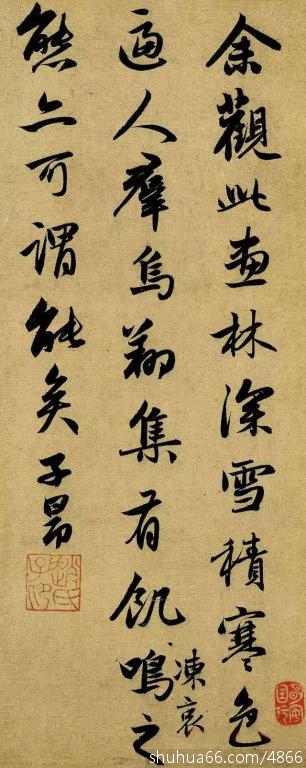 余觀此畫林深雪積寒色
逼人羣烏翔集有飢鳴之
凍哀
態亦可謂能矣子昂
趙氏子昂
shuhua66.com/4866